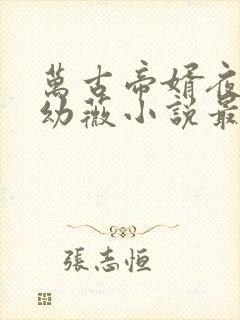 萬古帝婿夜
幼薇小說最
張志恒